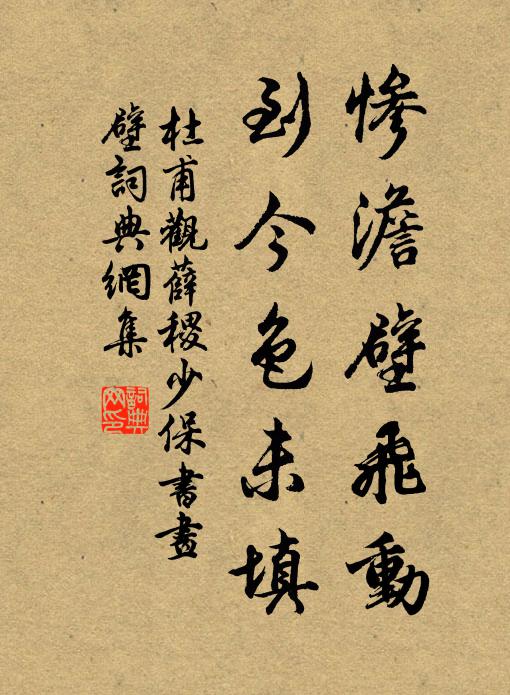 惨澹壁飛動
到今色未填
杜甫觀薛稷少保書畫
壁詞典網集
詞典網印